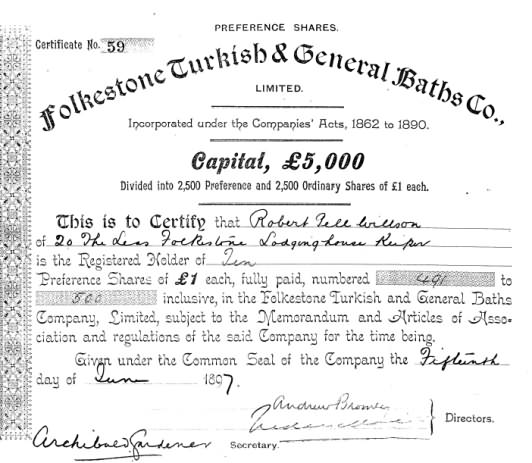 PREFERENCE SHARES.
Certificate No. 59
Folkestone Turkish & General Baths Co.,
LIMITED.
Incorporated under the Companies' Acts, 1862 to 1890.
Capital, £5,000
Divided into 2,500 Preference and 2,500 Ordinary Shares of £1 each.
This is to Certify that Robert Tell Willson
of 20 The Leas Folkestone Lodginghouse Keeper
is the Registered Holder of Ten
Preference Shares of £1 each, fully paid, numbered 491 to
500 inclusive, in the Folkestone Turkish and General Baths
Company, Limited, subject to the Memorandum and Articles of Asso-
ciation and regulations of the said Company for the time being.
Given under the Common Seal of the Company the Fifteenth
day of June 1897.
Andrew
Directors.
Archibald Gardener Secretary.